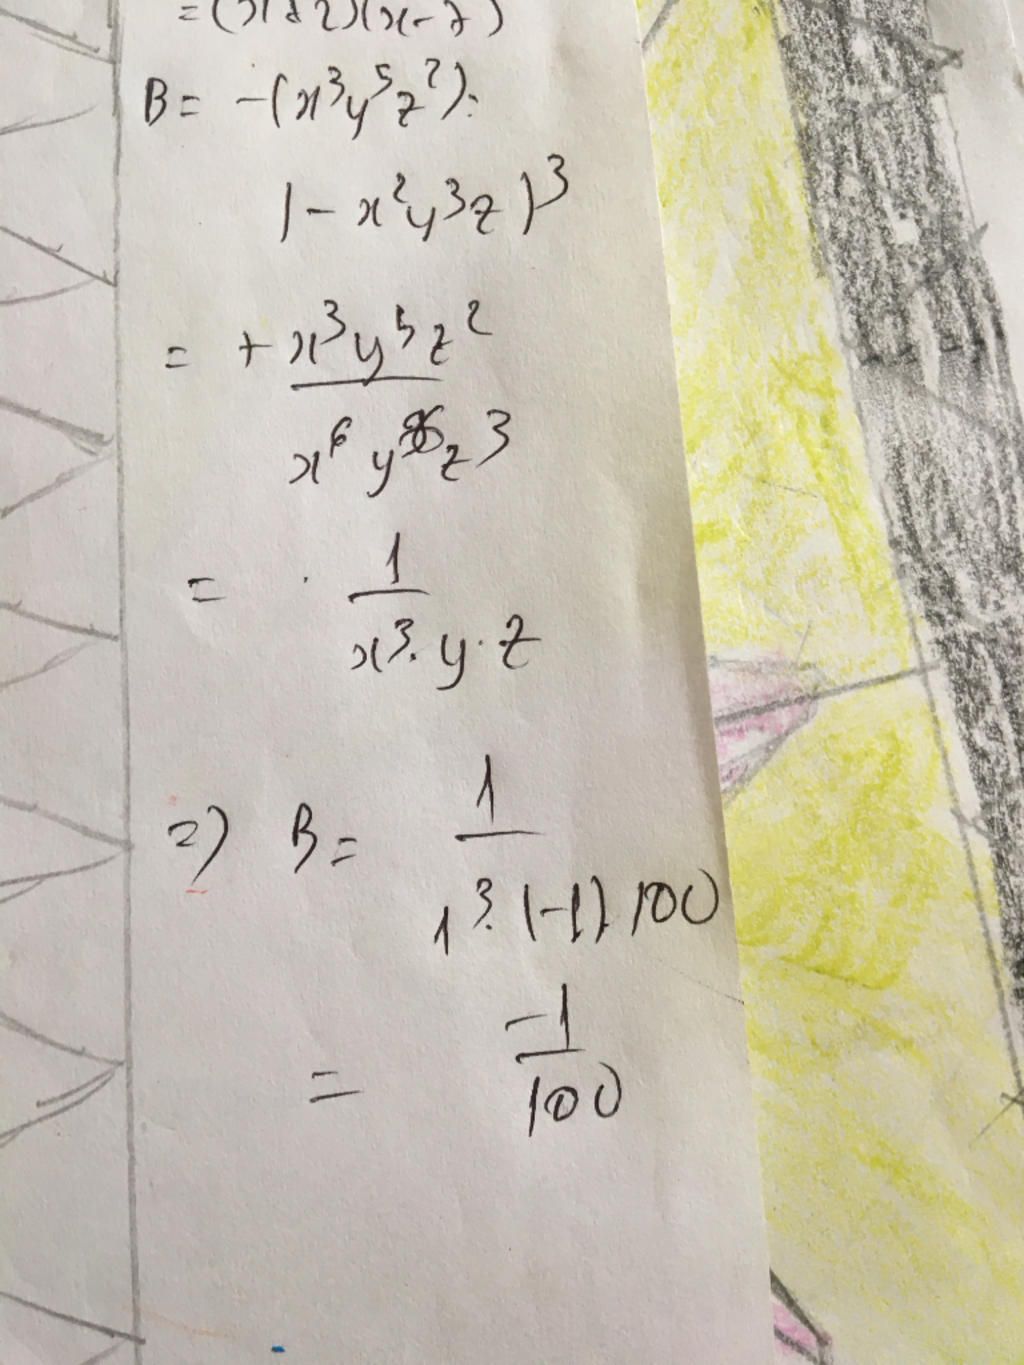 B= -(x³y⁵z²):
(-x²y³z)³
= + x³y⁵z² / x⁶ y⁶ z³
= 1 / x³.y.z
=) B= 1 / 1³.(-1).100
= -1 / 100